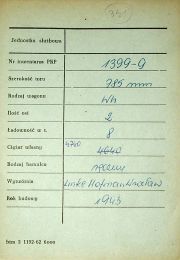 (351)
Jednostka służbowa
Nr inwentarza PKP 1399-9
Szerokość toru 785 mm
Rodzaj wagonu Wh
Ilość osi 2
Ładowność w t. 8
Ciężar własny 4760 4640
Rodzaj hamulca ręczny
Wytwórnia Linke Hofman Wrocław
Rok budowy 1943